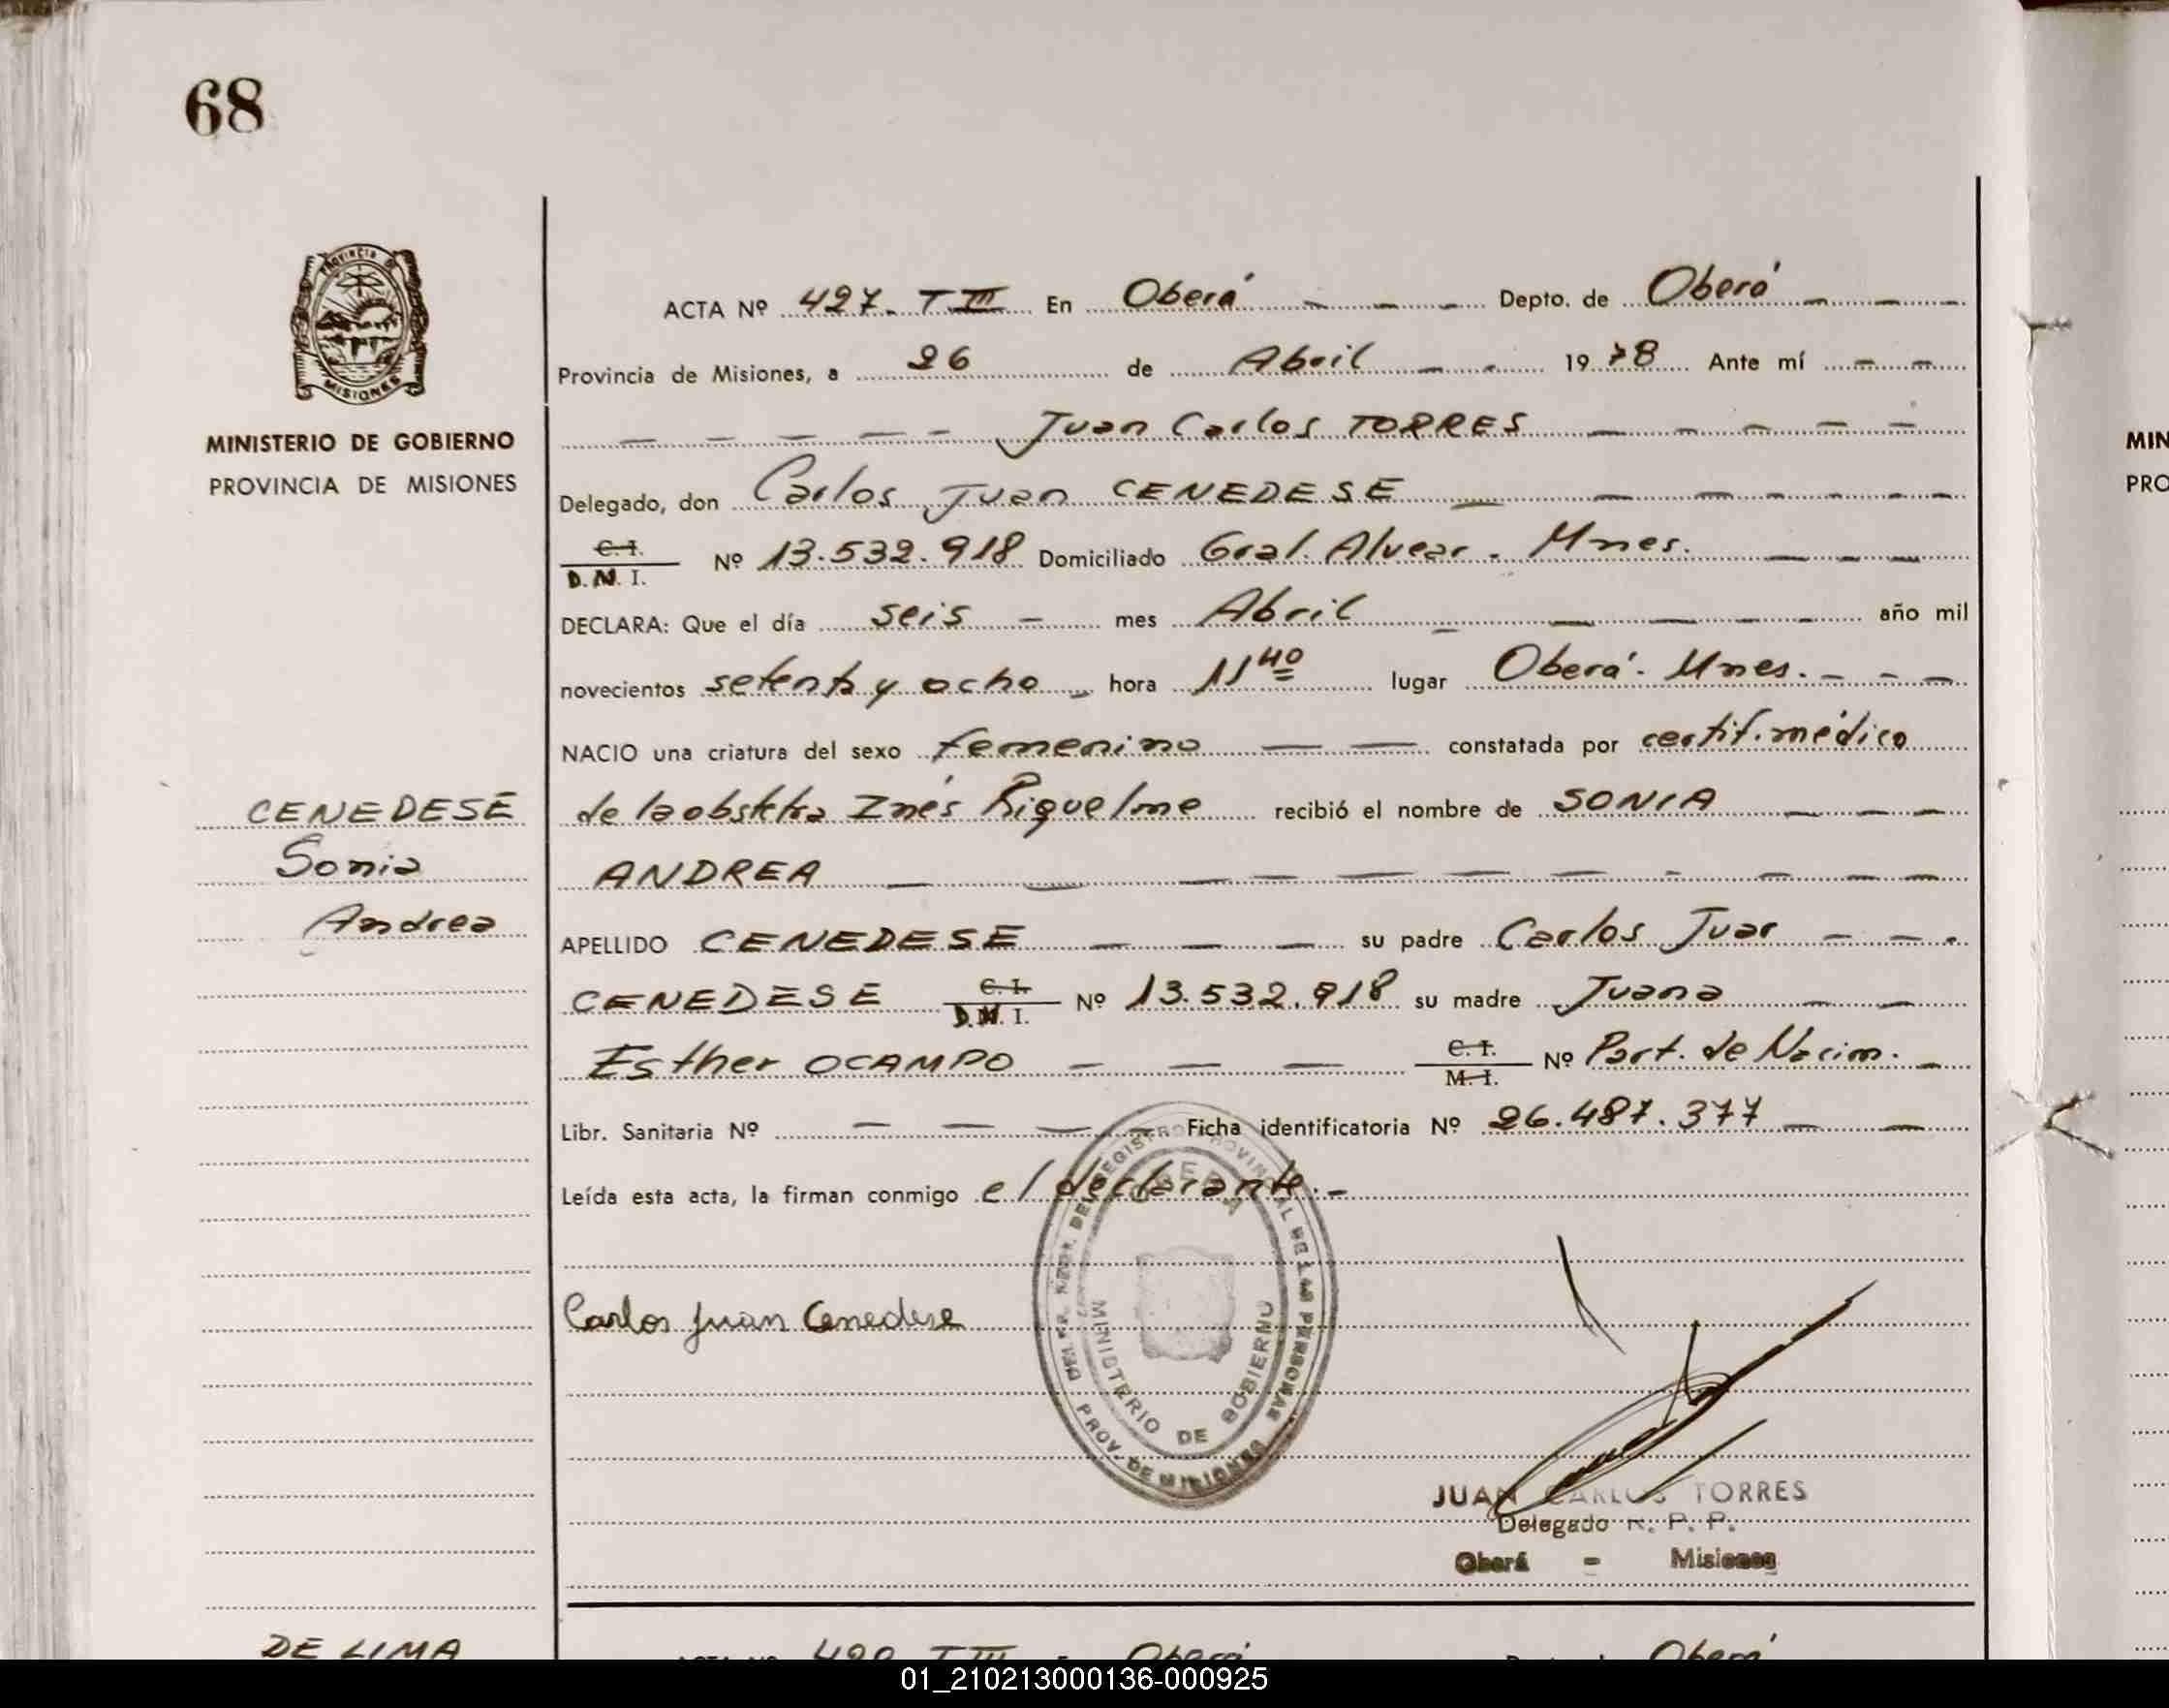 68
PROVINCIA DE
MISIONES
MINISTERIO DE GOBIERNO
PROVINCIA DE MISIONES
ACTA Nº 427. T III En Oberá Depto. de Oberá
Provincia de Misiones, a 26 de Abril 1978 Ante mí
Juan Carlos TORRES
Delegado, don Carlos Juan CENEDESE
C. I.
D. N. I. Nº 13.532.918 Domiciliado Gral. Alvear - Mnes.
DECLARA: Que el día seis mes Abril año mil
novecientos setenta y ocho hora 11 40 lugar Oberá - Mnes.
NACIO una criatura del sexo femenino constatada por certif. médico
de la obstetra Inés Riquelme recibió el nombre de SONIA
ANDREA
APELLIDO CENEDESE su padre Carlos Juan
CENEDESE C. I.
D. N. I. Nº 13.532.918 su madre Juana
Esther OCAMPO C. I.
M. I. Nº Part. de Nacim.
Libr. Sanitaria Nº Ficha identificatoria Nº 26.487.377
Leída esta acta, la firman conmigo el declarante.-
CENEDESE
Sonia
Andrea
Carlos Juan Cenedese
DEL REGISTRO PROVINCIAL DE LAS PERSONAS
PROV. DE MISIONES
OBERA
MINISTERIO DE GOBIERNO
JUAN CARLOS TORRES
Delegado R. P. P.
Oberá - Misiones
DE LIMA
ACTA Nº T III Oberá Oberá
MIN
PRO
01_210213000136-000925